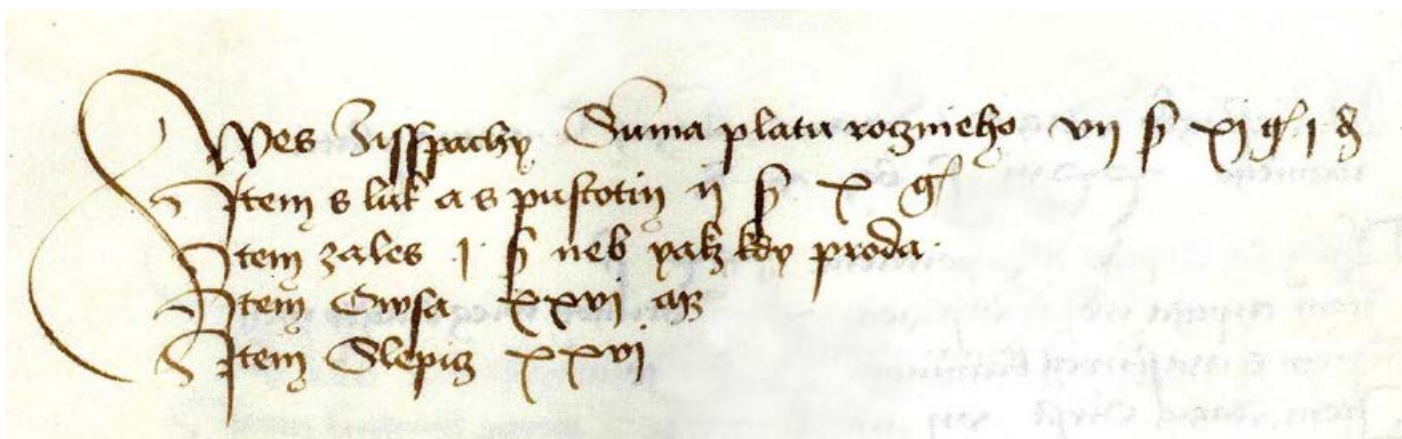 Wes Zisspachy Suma platu rocznieho vii ß xi gͬ i d
Item s luk a s pustotin ii ß x gͬ
Item zales i ß neb yakz kdy proda
Item Owsa xxvi
Item Slepiz xxvi